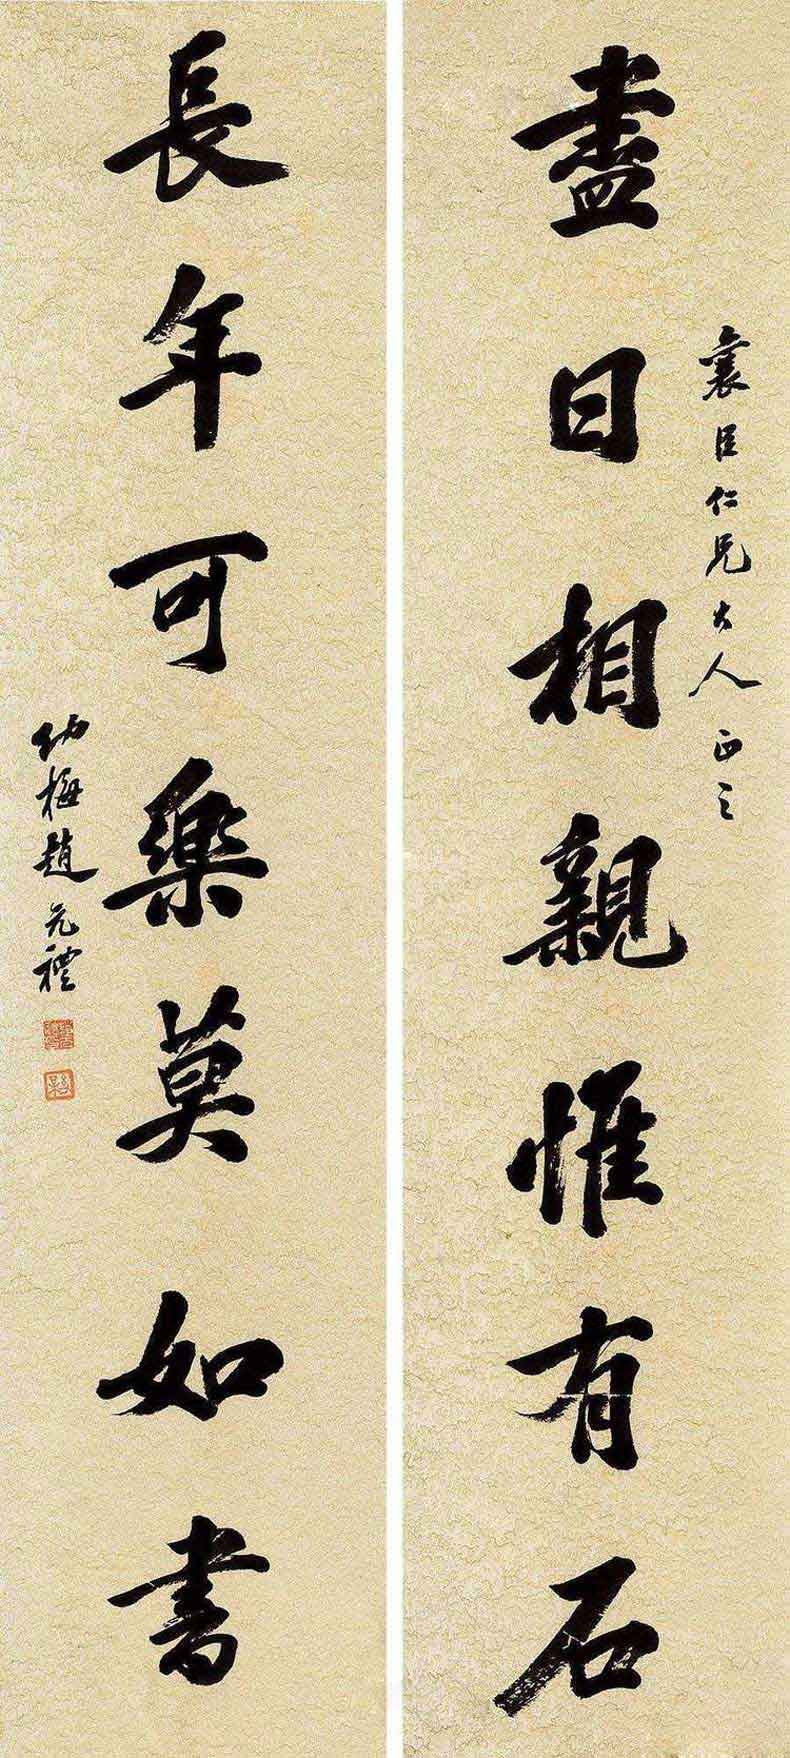 盡日相親惟有石
襄臣仁兄大人正之
長年可樂莫如書
幼梅趙元禮